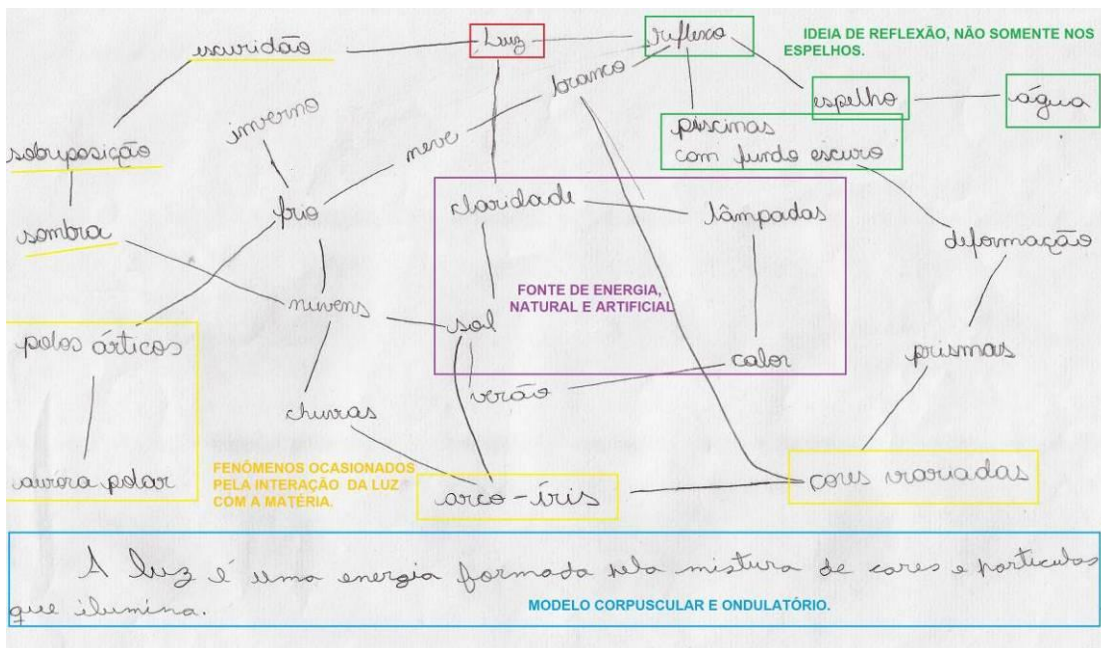 escuridão
Luz
reflexo
IDEIA DE REFLEXÃO, NÃO SOMENTE NOS
ESPELHOS.
branco
espelho
água
inverno
neve
piscinas
com fundo escuro
sobreposição
claridade
lâmpadas
frio
sombra
deformação
FONTE DE ENERGIA,
NATURAL E ARTIFICIAL
nuvens
sol
polos árticos
calor
prismas
verão
chuvas
aurora polar
FENÔMENOS OCASIONADOS
PELA INTERAÇÃO DA LUZ
COM A MATÉRIA.
arco-íris
cores variadas
A luz é uma energia formada pela mistura de cores e partículas
que ilumina.
MODELO CORPUSCULAR E ONDULATÓRIO.